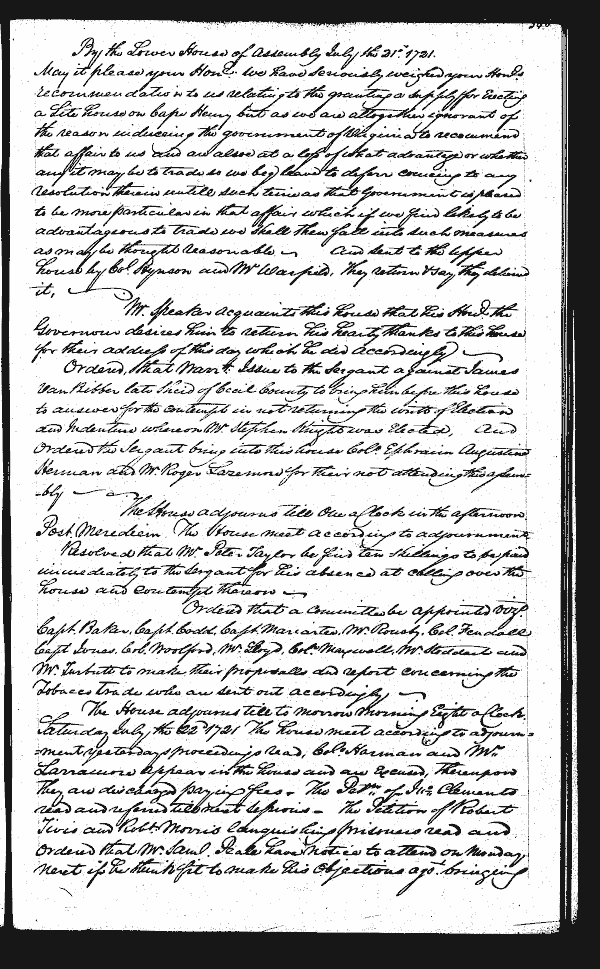 By the Lower House of Assembly July the 21st 1721.
May it please your Honrs. we have Seriously weighed your Honrs.
recommendation to us relating to the granting a supply for Erecting
a Lite house on Cape Henry but as we are altogether ignorant of
the reason induceing the government of Virginia to recommend
that affair to us and are alsoe at a loss of what advantage or whether
any it may be to trade so we beg leave to deferr comeing to any
resolution therein untill such time as that Government is pleased
to be more particular in that affair which if we find likely to be
advantageous to trade we shall then fall into such measures
as may be thought reasonable And sent to the upper
house by Col. Hynson and Mr. Warfied, They return & say they deliverd
it,
Mr. Speaker acquaints this house that his Honr. the
Governour desires him to return his hearty thanks to this house
for their address of this day which he did accordingly
Ordered, that Warrt. Issue to the Sergant against James
Van Bibber late Sheid of Cecil County to bring him before this house
to answer for the contempt in not returning the writt of Election
and Indenture whereon Mr. Stephen Knight was Elected, And
Ordered the Sergant bring into this house Colo. Ephraim Augustine
Herman and Mr. Roger Larremore for their not attending this assem-
-bly
The House adjourns till One a Clock in the afternoon
Post Merediem. The House meet according to adjournment
Resolved that Mr. Peter Taylor be fined ten Shillings to be paid
immediately to the Sergant for his absence at calling over the
house and contempt thereon
Ordered that a Committee be appointed vizt.
Capt. Baker, Capt. Codd, Capt. Mariartee, Mr. Rousby, Col. Fendall
Capt Jones, Col. Woolford, Mr. Lloyd, Colo. Maxwell, Mr. Stoddert and
Mr. Turbutt to make their proposalls and report concerning the
Tobacco trade who are sent out accordingly
The House adjourns till to morrow morning Eight a Clock.
Saturday July the 22d 1721 The house meet according to adjourn=
=ment, yesterdays proceedings read, Colo. Harman and Mr.
Larramore appear in the house and are Excused, thereupon
they are discharged paying fees - The Petn. of Jno. Clements
read and referred till next sessions - The Petition of Robert
Tivis and Robt. Morris languishing prisoners read and
Ordered that Mr. Saml. Peale have notice to attend on Monday
next if he think fit to make his Objections agst. bringing